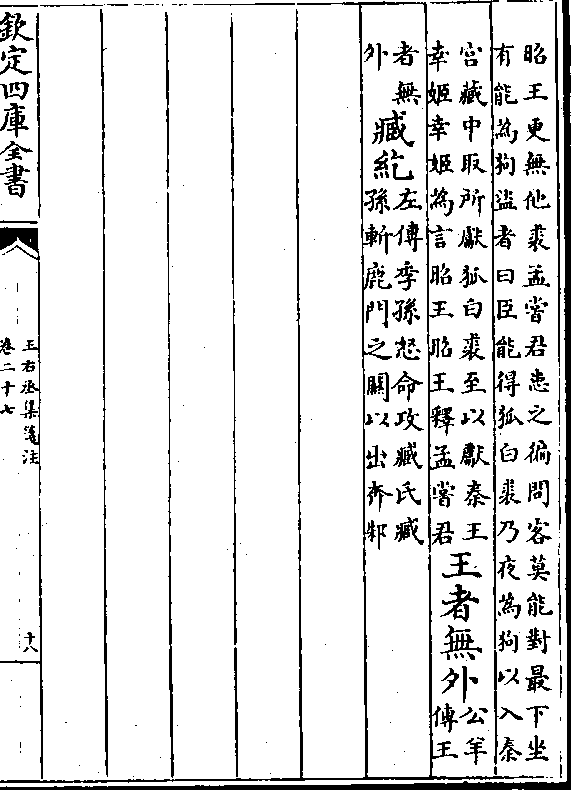 昭王更無他裘孟嘗君患之徧問客莫能對最下坐
有能為狗盜者曰臣能得狐白裘乃夜為狗以入秦
宫藏中取所獻狐白裘至以獻秦王
幸姬幸姬為言昭王昭王釋孟嘗君
王者無外
公羊
傳王
者無
外
臧紇
左傳季孫怒命攻臧氏臧
孫斬鹿門之關以出奔邾
欽定四庫全書
王右丞集箋注
卷二十七
十八